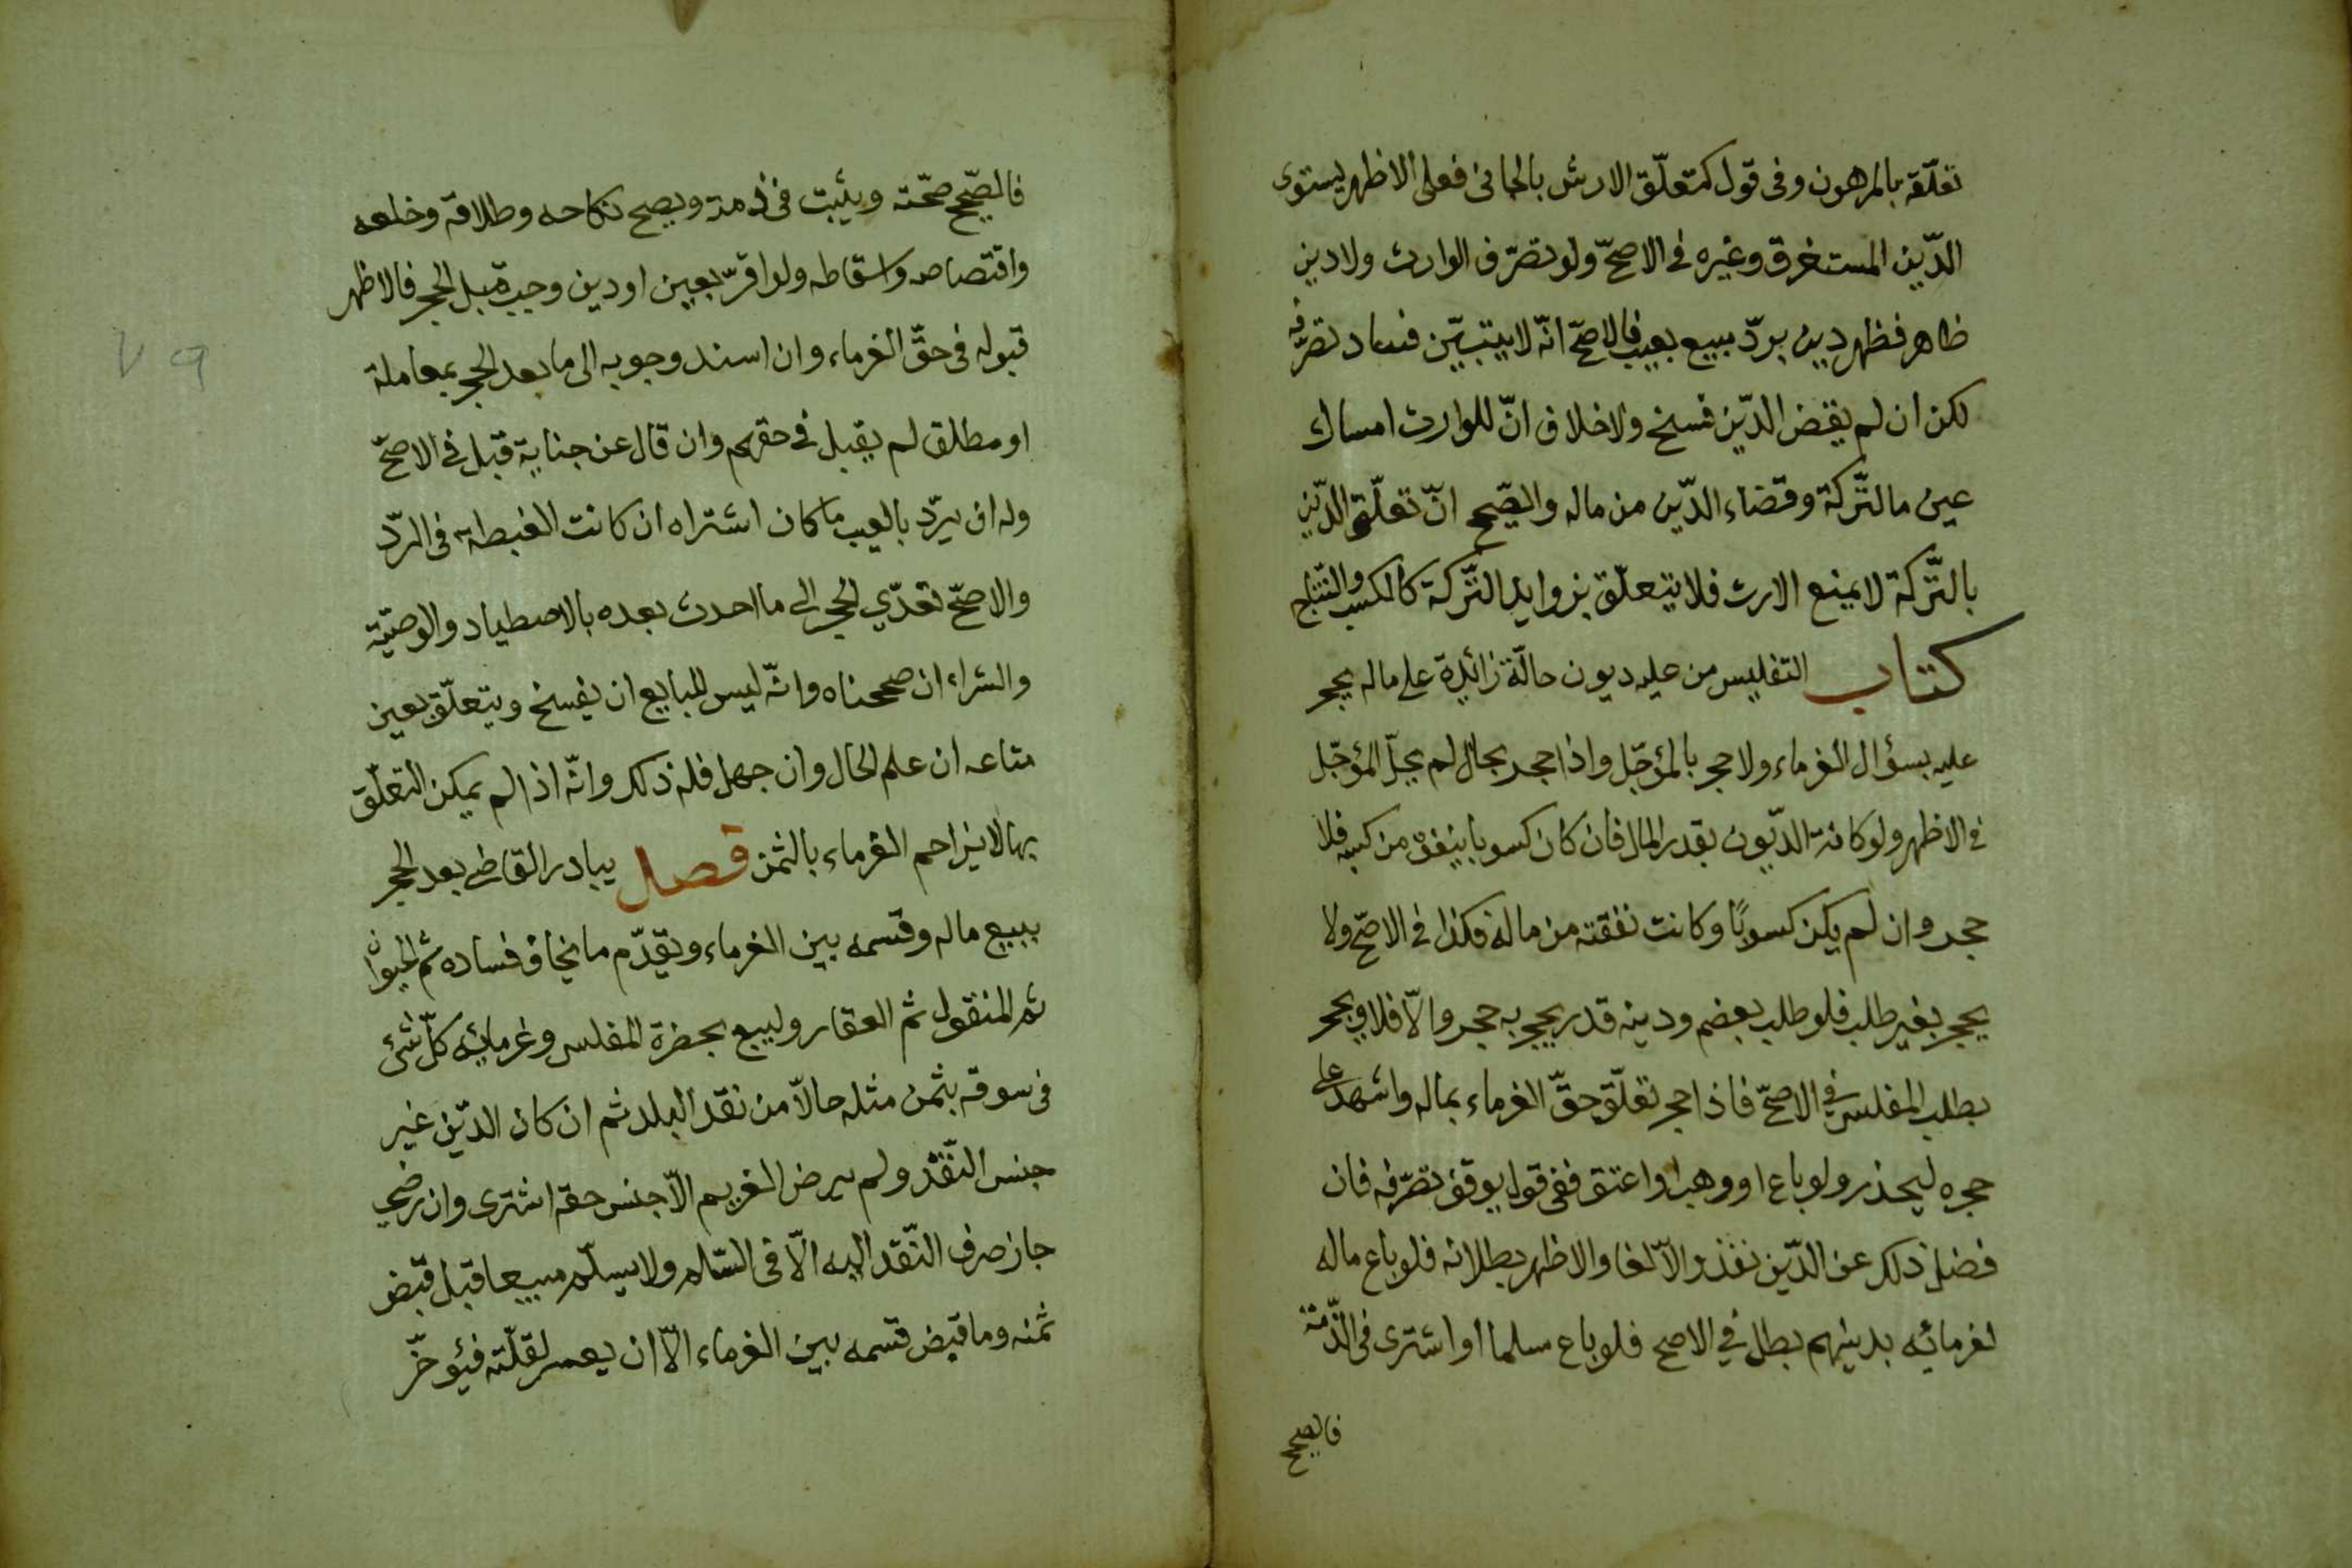 تعلّقه بالمرهون وفى قول كمتعلّق الارش بالجانى فعلى الاظهر يستوى
الدّين المستغرق وغيره فى الاصحّ ولو تصرّف الوارث ولا دين
ظاهر فظهر دين بردّ مبيع بعيب فالاصحّ انّه لا يتبيّن فساد تصرّفه
لكن ان لم يقض الدّين فسخ ولاخلاف انّ للوارث امساك
عين مالتّركة وقضاء الدّين من ماله والصّحيح انّ تعلّق الدّين
بالتّركة لا يمنع الارث فلا يتعلّق بزوايد التّركة كالكسب والنّتاج
كتاب التفليس من عليه ديون حالّة زائدة على ماله يحجر
عليه بسؤال الغرماء ولا حجر بالمؤجّل واذا حجر بحال لم يحلّ المؤجّل
فى الاظهر ولو كانة الدّيون بقدر المال فان كان كسوبا ينفق من كسبه فلا
حجر وان لم يكن كسوبًا وكانت نفقته من ماله فكذا فى الاصحّ ولا
يحجر بغير طلب فلو طلب بعضهم ودينه قدر يحجر به حجر والاّ فلا ويحجر
بطلب المفلس فى الاصحّ فاذا حجر تعلّق حقّ الغرماء بماله واشهد على
حجره ليحذر ولو باع او وهب او اعتق ففى قول يوقف تصرّفه فان
فضل ذلك عن الدّين نفذ والاّ لغا والاظهر بطلانه فلو باع ماله
لغرمائه بدينهم بطل فى الاصح فلو باع سلما او اشترى فى الذّمّة
فالصحيح
فالصّحيح صحّته ويثبت فى ذمته ويصح نكاحه وطلاقه وخلعه
واقتصاصه واسقاطه ولو اقرّ بعين او دين وجب قبل الحجر فالاظهر
قبوله فى حقّ الغرماء وان اسند وجوبه الى ما بعد الحجر بمعاملة
او مطلق لم يقبل فى حقهم وان قال عن جناية قبل فى الاصحّ
وله ان يردّ بالعيب ما كان اشتراه ان كانت الغبطة فى الردّ
والاصحّ تعدّي الحجر الى ما احدث بعده بالاصطياد والوصيّة
والشراء ان صححناه وانّه ليس للبايع ان يفسخ ويتعلّق بعين
متاعه ان علم الحال وان جهل فله ذلك وانّه اذا لم يمكن التعلّق
بها لا يزاحم الغرماء بالثمن فصل يبادر القاضى بعد الحجر
ببيع ماله وقسمه بين الغرماء ويقدّم ما يخاف فساده ثم الحيوان
ثم المنقول ثم العقار وليبع بحضرة المفلس وغرمائه كلّ شئ
فى سوقه بثمن مثله حالاّ من نقد البلد ثم ان كان الدّين غير
جنس النّقد ولم يرض الغريم الاّ جنس حقه اشترى وان رضي
جاز صرف النّقد اليه الاّ فى السّلم ولا يسلّم مبيعا قبل قبض
ثمنه وما قبض قسمه بين الغرماء الاّ ان يعسر لقلّته فيؤخّر
٧٩